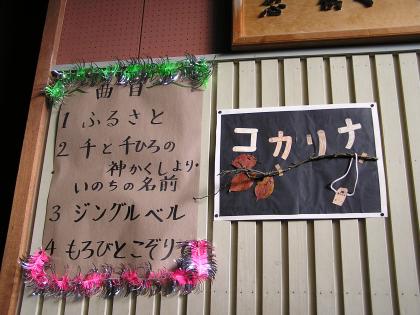 曲目
1 ふるさと
2 千と千ひろの
神かくしより・
いのちの名前
3 ジングルベル
4 もろびとこぞりて
コカリナ